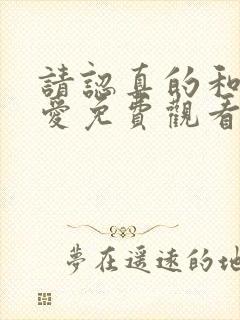 請認真的和
愛免費觀看
夢在遙遠的地